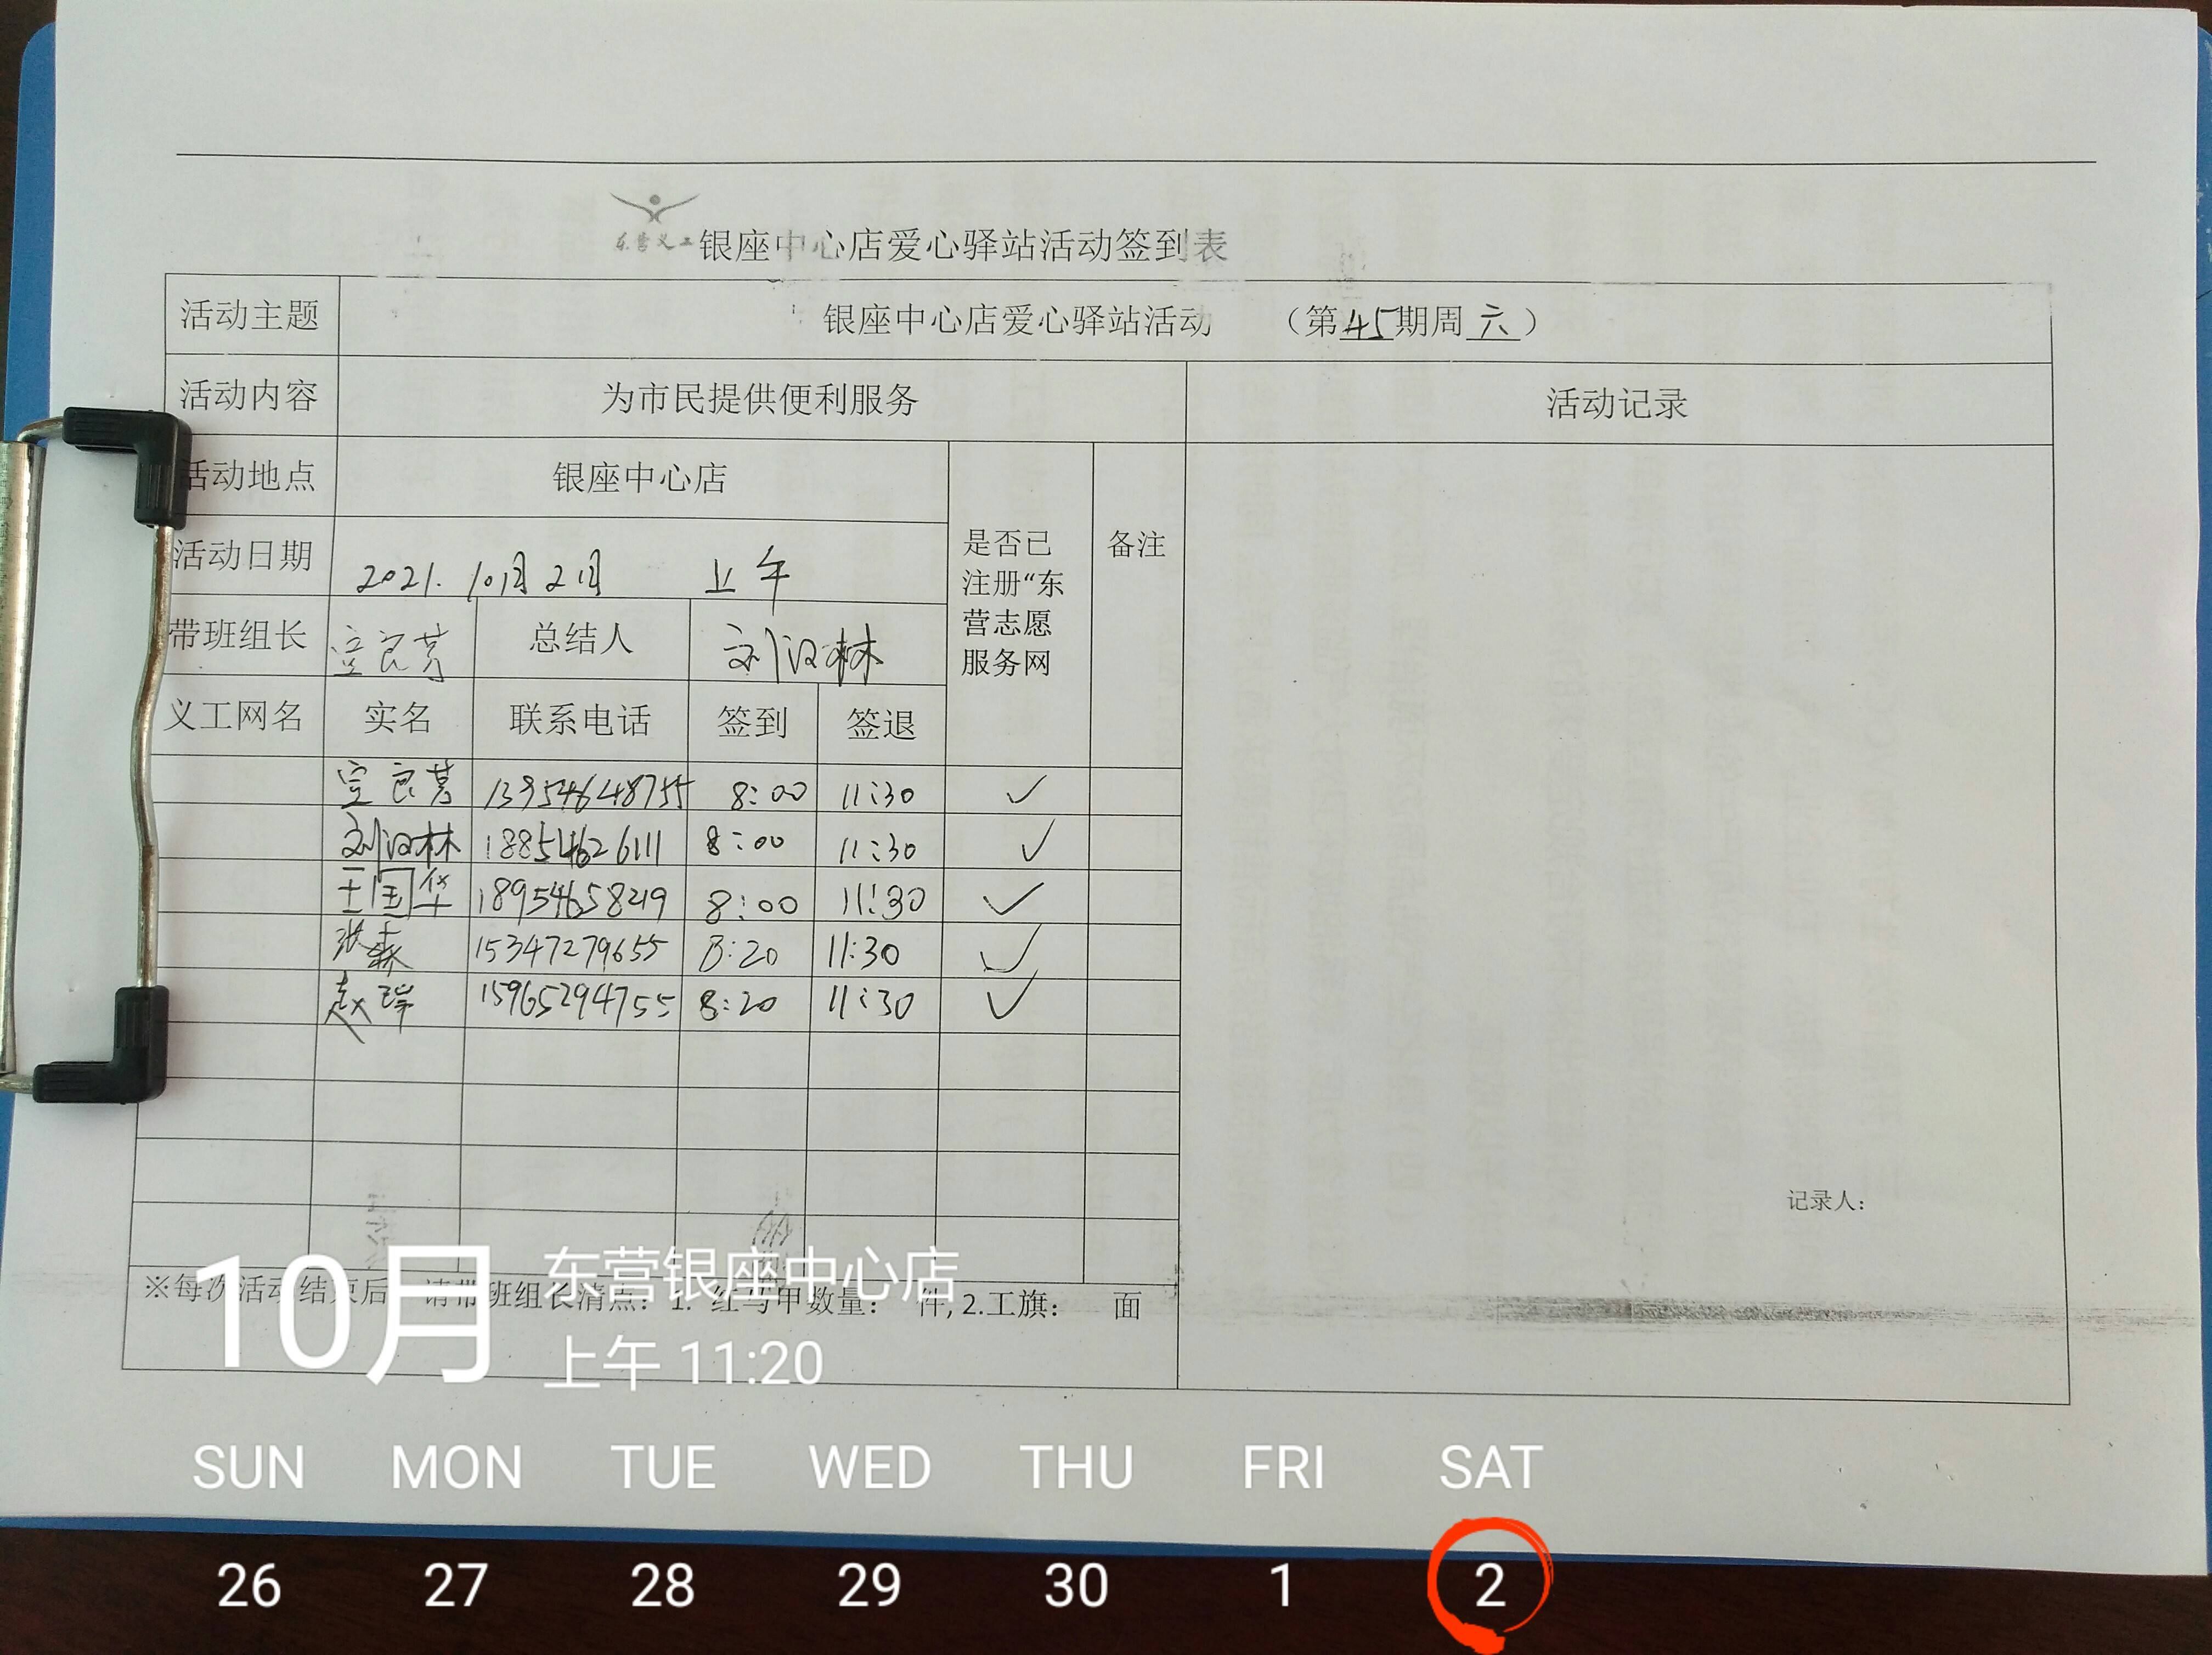 东营义工
银座中心店爱心驿站活动签到表
活动主题 银座中心店爱心驿站活动 （第45期周六）
活动内容 为市民提供便利服务 活动记录
活动地点 银座中心店
是否已注册“东营志愿服务网 备注
活动日期 2021. 10月2日 上午
带班组长 良芳 总结人 刘汉林
义工网名 实名 联系电话 签到 签退
良芳 13954648755 8:00 11:30 ✓
刘汉林 18854626111 8:00 11:30 ✓
王国华 18954658219 8:00 11:30 ✓
张森 15347279655 8:20 11:30 ✓
赵瑞 15965294755 8:20 11:30 ✓
记录人：
※每次活动结束后 请带班组长清点：1. 红马甲数量： 件, 2.工旗： 面
10月 东营银座中心店
上午 11:20
SUN MON TUE WED THU FRI SAT
26 27 28 29 30 1 2